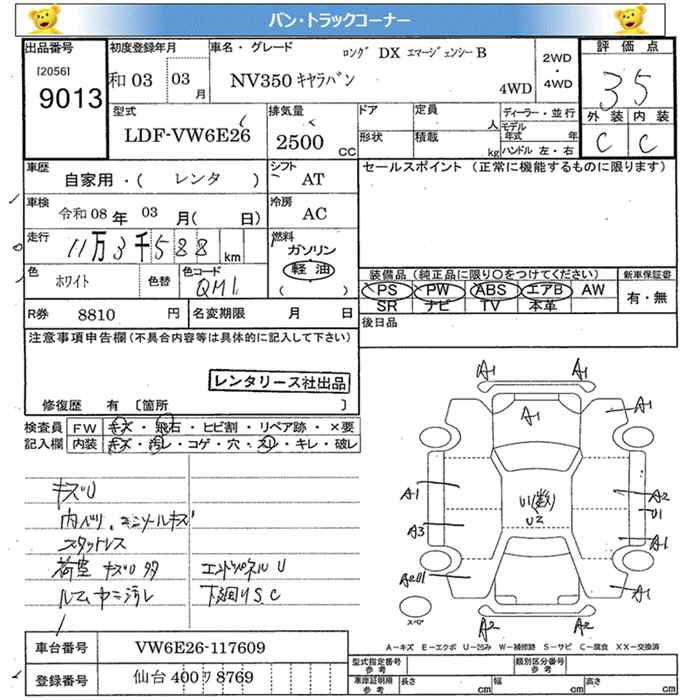 バン・トラックコーナー
出品番号
[2056]
9013
初度登録年月
和 03 03 月
車名・グレード
ロング DX エマージェンシー B
NV350 キャラバン
4WD
2WD
・
4WD
評価点
35
外装 内装
C C
型式
LDF-VW6E26
排気量
2500 CC
ドア
形状
定員 人
積載 kg
ディーラー・並行
モデル年式 年
ハンドル 左・右
車歴
自家用・( レンタ )
シフト
AT
セールスポイント (正常に機能するものに限ります)
車検
令和 08 年 03 月( 日)
冷房
AC
走行
11万3千588 km
燃料
ガソリン
軽油
( )
色
ホワイト
色替
色コード
QM1
装備品 (純正品に限り○をつけてください)
PS PW ABS エアB AW
SR ナビ TV 本革
新車保証書
有・無
R券 8810 円
名変期限 月 日
後日品
注意事項申告欄 (不具合内容等は具体的に記入して下さい)
レンタリース社出品
修復歴 有 〔箇所 〕
検査員
記入欄
FW キズ・飛石・ヒビ割・リペア跡・×要
内装 キズ・汚レ・コゲ・穴・スレ・キレ・破レ
キズU
スタットレス
荷室 キズU多
エンドパネル U
下回りS.C
A1 A1
A1
A1
A1
A2
U1
U(数)
U2
A3
A1
A2U1
A1
スペア
A2 A2
A-キズ E-エクボ U-凹み W-補修跡 S-サビ C-腐食 XX-交換済
車台番号 VW6E26-117609
登録番号 仙台 400 ワ 8769
型式指定番号
参考
類別区分番号
参考
車庫証明用
参考
長さ cm
幅 cm
高さ cm